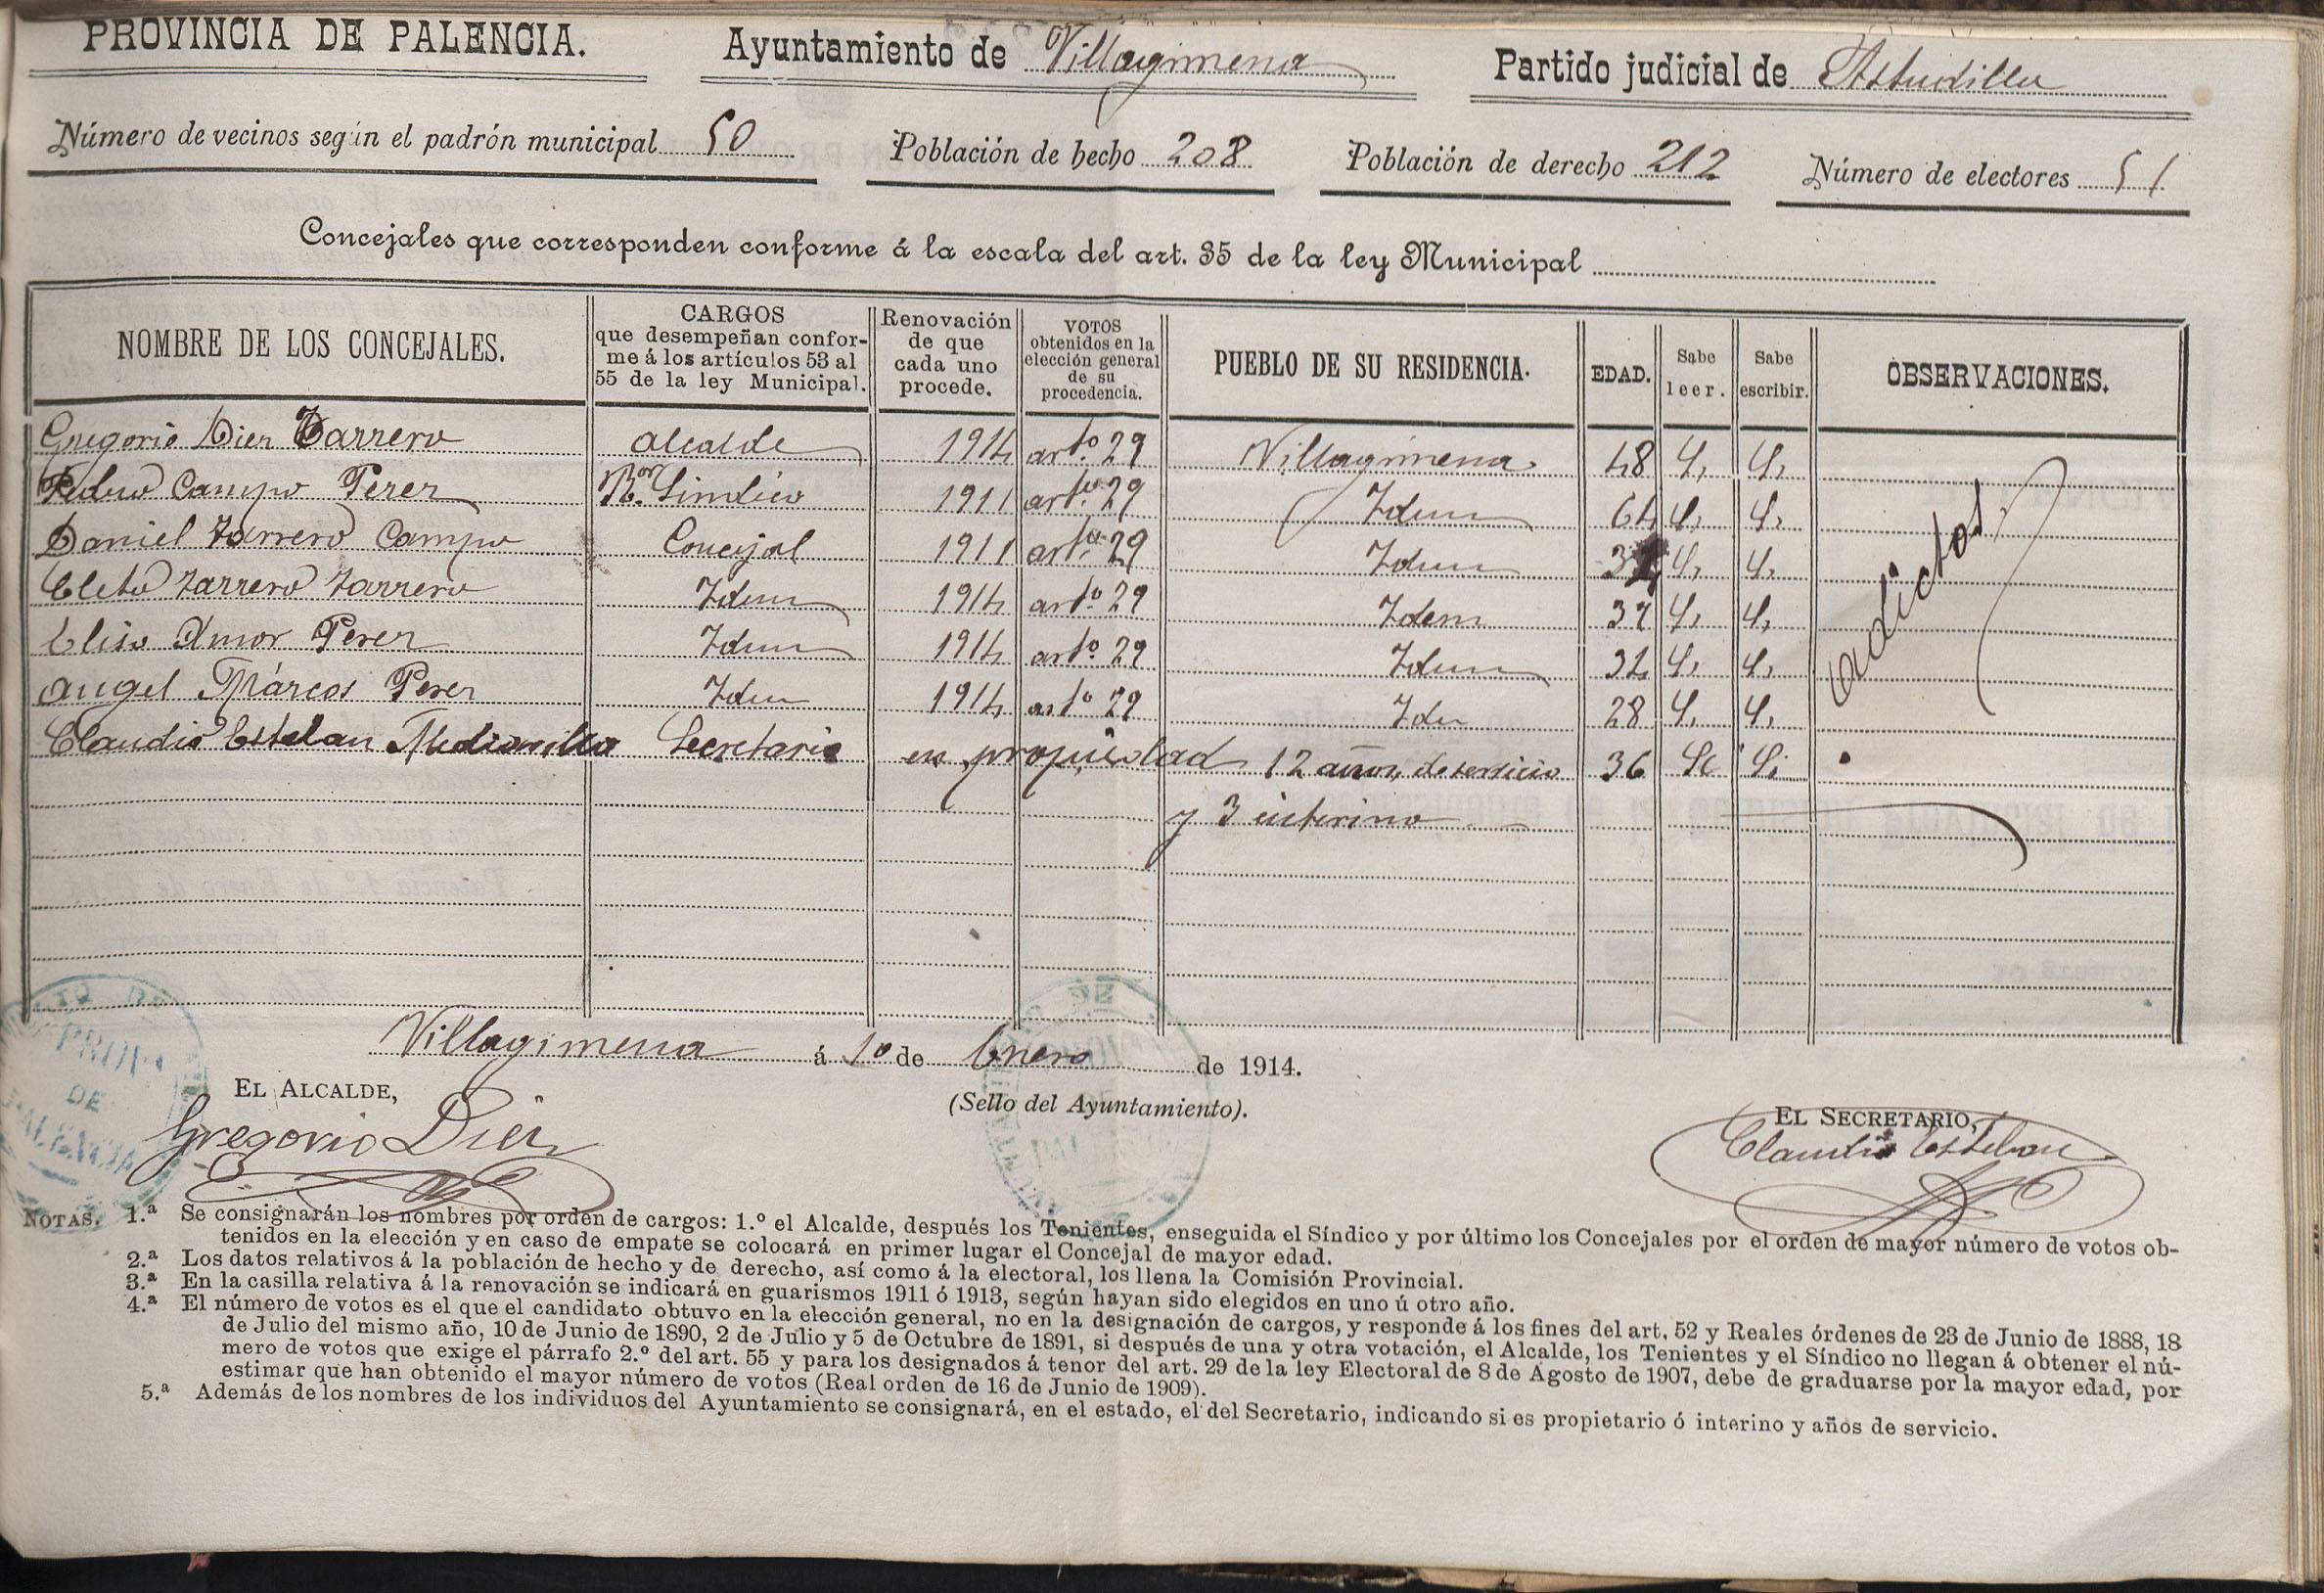 PROVINCIA DE PALENCIA. Ayuntamiento de Villagimena Partido judicial de Astudillo
Número de vecinos según el padrón municipal 50 Población de hecho 208 Población de derecho 212 Número de electores 51
Concejales que corresponden conforme á la escala del art. 35 de la ley Municipal
NOMBRE DE LOS CONCEJALES. CARGOS que desempeñan confor- me á los artículos 53 al 55 de la ley Municipal. Renovación de que cada uno procede. VOTOS obtenidos en la elección general de su procedencia. PUEBLO DE SU RESIDENCIA. EDAD. Sabe leer. Sabe escribir. OBSERVACIONES.
Gregorio Diez Zarrero Alcalde 1914 arto. 29 Villagimena 48 Si Si
Pedro Campo Perez Ror. Sindico 1911 arto. 29 Idem 64 Si Si
Daniel Zarrero Campo Concejal 1911 arto. 29 Idem Si Si
Cleto Zarrero Zarrero Idem 1914 arto. 29 Idem 37 Si Si
Eliso Amor Perez Idem 1914 arto. 29 Idem 34 Si Si
Angel Márcos Perez Idem 1914 arto. 29 Idem 28 Si Si
adictos
Claudio Esteban Medianilla Secretario en propiedad 12 años de servicio 36 Si Si
y 3 interino
Villagimena á 1o de Enero de 1914.
EL ALCALDE,
(Sello del Ayuntamiento).
EL SECRETARIO,
Gregorio Diez
Claudio Esteban
NOTAS. 1.ª Se consignarán los nombres por orden de cargos: 1.º el Alcalde, después los Tenientes, enseguida el Síndico y por último los Concejales por el orden de mayor número de votos ob-
tenidos en la elección y en caso de empate se colocará en primer lugar el Concejal de mayor edad.
2.ª Los datos relativos á la población de hecho y de derecho, así como á la electoral, los llena la Comisión Provincial.
3.ª En la casilla relativa á la renovación se indicará en guarismos 1911 ó 1913, según hayan sido elegidos en uno ú otro año.
4.ª El número de votos es el que el candidato obtuvo en la elección general, no en la designación de cargos, y responde á los fines del art. 52 y Reales órdenes de 23 de Junio de 1888, 18
de Julio del mismo año, 10 de Junio de 1890, 2 de Julio y 5 de Octubre de 1891, si después de una y otra votación, el Alcalde, los Tenientes y el Síndico no llegan á obtener el nú-
mero de votos que exige el párrafo 2.º del art. 55 y para los designados á tenor del art. 29 de la ley Electoral de 8 de Agosto de 1907, debe de graduarse por la mayor edad, por
estimar que han obtenido el mayor número de votos (Real orden de 16 de Junio de 1909).
5.ª Además de los nombres de los individuos del Ayuntamiento se consignará, en el estado, el del Secretario, indicando si es propietario ó interino y años de servicio.